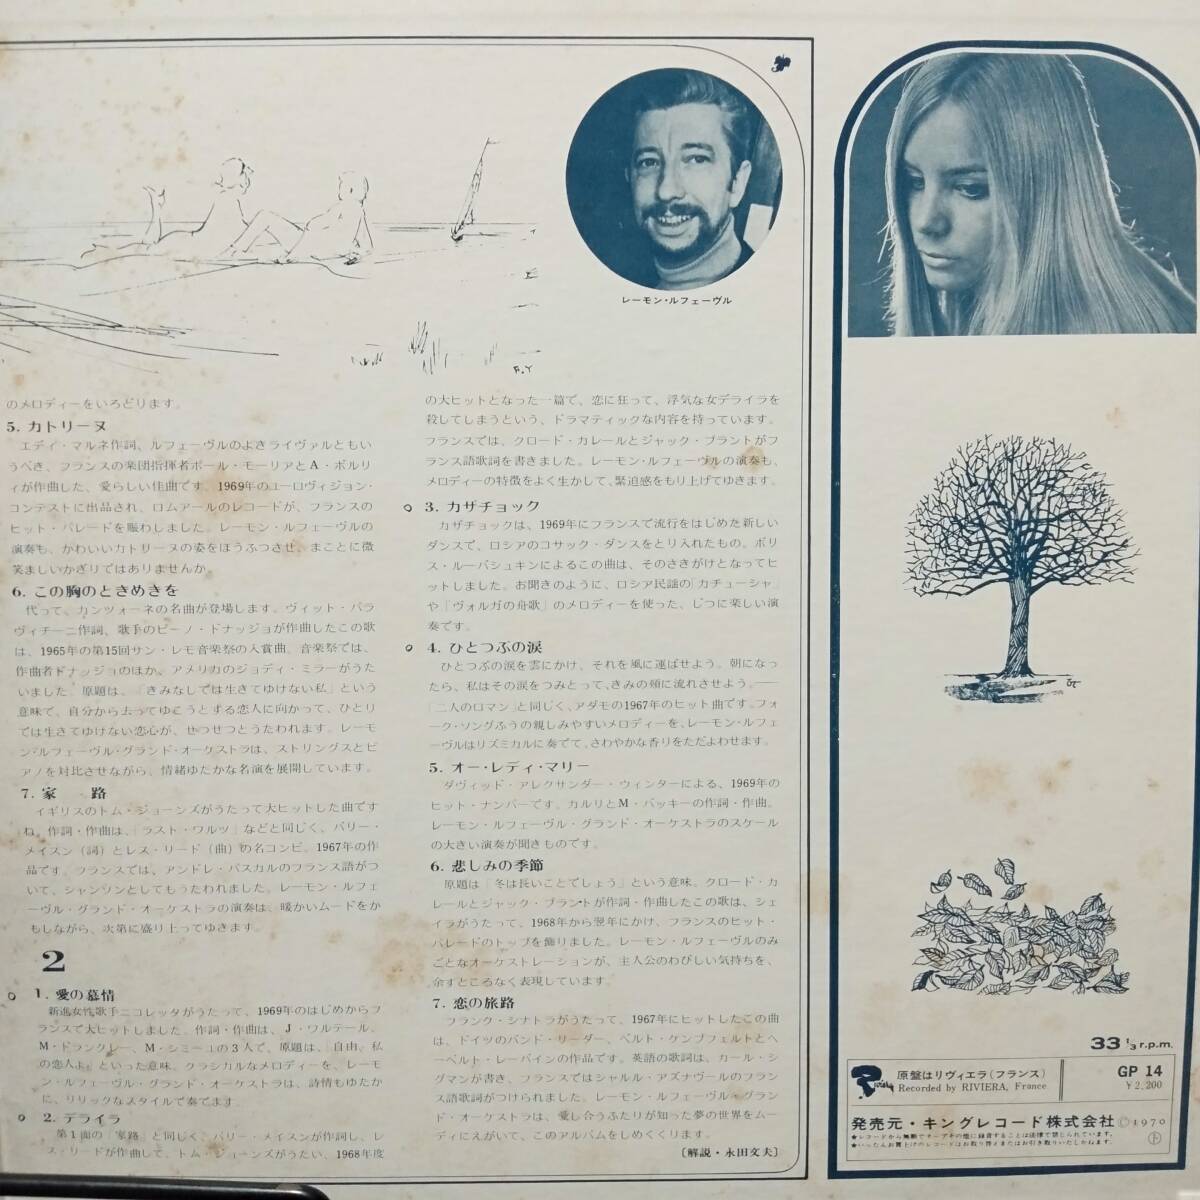 レーモン・ルフェーヴル
R.Y
のメロディーをいろどります。
5. カトリーヌ
エディ・マルネ作詞、ルフェーヴルのよきライヴァルともい
うべき、フランスの楽団指揮者ポール・モーリアとA・ボルリ
ィが作曲した、愛らしい佳曲です。1969年のユーロヴィジョン・
コンテストに出品され、ロムアールのレコードが、フランスの
ヒット・パレードを賑わしました。レーモン・ルフェーヴルの
演奏も、かわいいカトリーヌの姿をほうふつさせ、まことに微
笑ましいかぎりではありませんか。
6. この胸のときめきを
代って、カンツォーネの名曲が登場します。ヴィット・パラ
ヴィチーニ作詞、歌手のピーノ・ドナッジョが作曲したこの歌
は、1965年の第15回サン・レモ音楽祭の入賞曲。音楽祭では、
作曲者ドナッジョのほか、アメリカのジョディ・ミラーがうた
いました。原題は、「きみなしでは生きてゆけない私」という
意味で、自分から去ってゆこうとする恋人に向かって、ひとり
では生きてゆけない恋心が、せつせつとうたわれます。レーモ
ン・ルフェーヴル・グランド・オーケストラは、ストリングスとピ
アノを対比させながら、情緒ゆたかな名演を展開しています。
7. 家　路
イギリスのトム・ジョーンズがうたって大ヒットした曲です
ね。作詞・作曲は、「ラスト・ワルツ」などと同じく、バリー・
メイスン（詞）とレス・リード（曲）の名コンビ。1967年の作
品です。フランスでは、アンドレ・パスカルのフランス語がつ
いて、シャンソンとしてもうたわれました。レーモン・ルフェ
ーヴル・グランド・オーケストラの演奏は、暖かいムードをか
もしながら、次第に盛り上ってゆきます。
2
1. 愛の慕情
新進女性歌手ニコレッタがうたって、1969年のはじめからフ
ランスで大ヒットしました。作詞・作曲は、J・ワルテール、
M・ドランクレー、M・シミーユの3人で、原題は、「自由、私
の恋人よ」といった意味。クラシカルなメロディーを、レーモ
ン・ルフェーヴル・グランド・オーケストラは、詩情もゆたか
に、リリックなスタイルで奏でます。
2. デライラ
第1面の「家路」と同じく、バリー・メイスンが作詞し、レ
ス・リードが作曲して、トム・ジョーンズがうたい、1968年度
の大ヒットとなった一篇で、恋に狂って、浮気な女デライラを
殺してしまうという、ドラマティックな内容を持っています。
フランスでは、クロード・カレールとジャック・プラントがフ
ランス語歌詞を書きました。レーモン・ルフェーヴルの演奏も、
メロディーの特徴をよく生かして、緊迫感をもり上げてゆきます。
3. カザチョック
カザチョックは、1969年にフランスで流行をはじめた新しい
ダンスで、ロシアのコサック・ダンスをとり入れたもの。ボリ
ス・ルーバシュキンによるこの曲は、そのさきがけとなってヒ
ットしました。お聞きのように、ロシア民謡の「カチューシャ」
や「ヴォルガの舟歌」のメロディーを使った、じつに楽しい演
奏です。
4. ひとつぶの涙
ひとつぶの涙を雲にかけ、それを風に運ばせよう。朝になっ
たら、私はその涙をつみとって、きみの頬に流れさせよう。——
「二人のロマン」と同じく、アダモの1967年のヒット曲です。フォ
ーク・ソングふうの親しみやすいメロディーを、レーモン・ルフェ
ーヴルはリズミカルに奏でて、さわやかな香りをただよわせます。
5. オー・レディ・マリー
ダヴィッド・アレクサンダー・ウィンターによる、1969年の
ヒット・ナンバーです。カルリとM・バッキーの作詞・作曲。
レーモン・ルフェーヴル・グランド・オーケストラのスケール
の大きい演奏が聞きものです。
6. 悲しみの季節
原題は「冬は長いことでしょう」という意味。クロード・カ
レールとジャック・プラントが作詞・作曲したこの歌は、シェ
イラがうたって、1968年から翌年にかけ、フランスのヒット・
パレードのトップを飾りました。レーモン・ルフェーヴルのみ
ごとなオーケストレーションが、主人公のわびしい気持ちを、
余すところなく表現しています。
7. 恋の旅路
フランク・シナトラがうたって、1967年にヒットしたこの曲
は、ドイツのバンド・リーダー、ベルト・ケンプフェルトとヘ
ーベルト・レーバインの作品です。英語の歌詞は、カール・シ
グマンが書き、フランスではシャルル・アズナヴールのフラン
ス語歌詞がつけられました。レーモン・ルフェーヴル・グラン
ド・オーケストラは、愛し合うふたりが知った夢の世界をムー
ディにえがいて、このアルバムをしめくくります。
〔解説・永田文夫〕
33 1/3 r.p.m.
Riviera
原盤はリヴィエラ（フランス）
Recorded by RIVIERA, France
GP 14
￥2,200
発売元・キングレコード株式会社 ©1970
★レコードから無断でテープその他に録音することは法律で禁じられています。
★いったんお買上げのレコードはお取り替えまたはお引き取りいたしかねます。